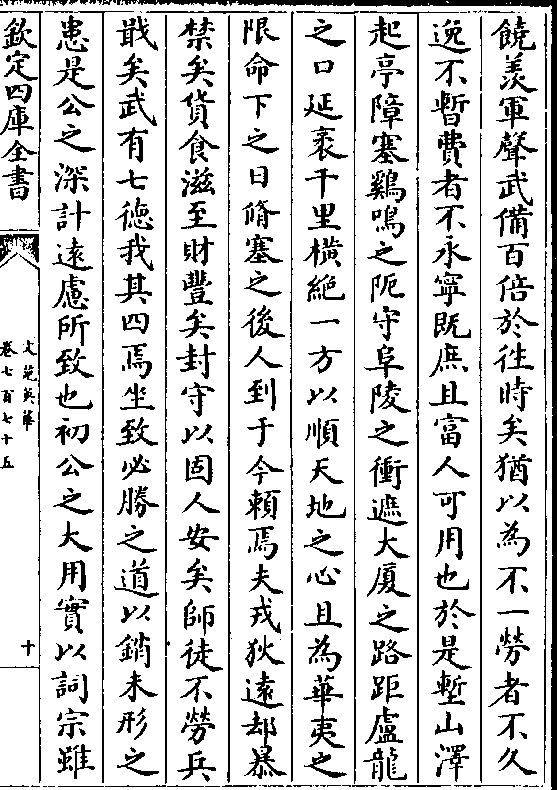 饒羡軍聲武備百倍於徃時矣猶以為不一勞者不久
逸不暫費者不永寧既庶且富人可用也於是塹山澤
起亭障塞鷄鳴之阨守阜陵之衝遮大厦之路距盧龍
之口延袤千里橫絶一方以順天地之心且為華夷之
限命下之日脩塞之後人到于今賴焉夫戎狄遠却暴
禁矣貨食滋至財豐矣封守以固人安矣師徒不勞兵
戢矣武有七徳我其四焉坐致必勝之道以銷未形之
患是公之深計遠慮所致也初公之大用實以詞宗雖
欽定四庫全書
文苑英華
卷七百七十五
十